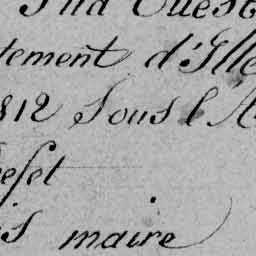 Sud Ouest
tement d'Ille
812 Sous l'A
efet
is maire